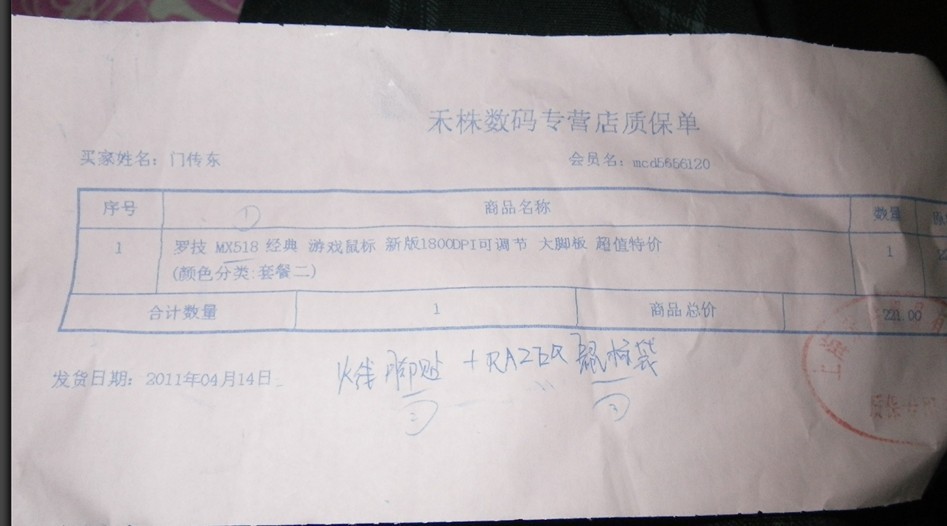 禾株数码专营店质保单
买家姓名：门传东 会员名：mcd5656120
序号 商品名称 数量
①
1 罗技 MX518 经典 游戏鼠标 新版1800DPI可调节 大脚板 超值特价 1
(颜色分类:套餐二)
合计数量 1 商品总价 221.00
火线 脚贴 + RAZER 鼠标袋
发货日期：2011年04月14日